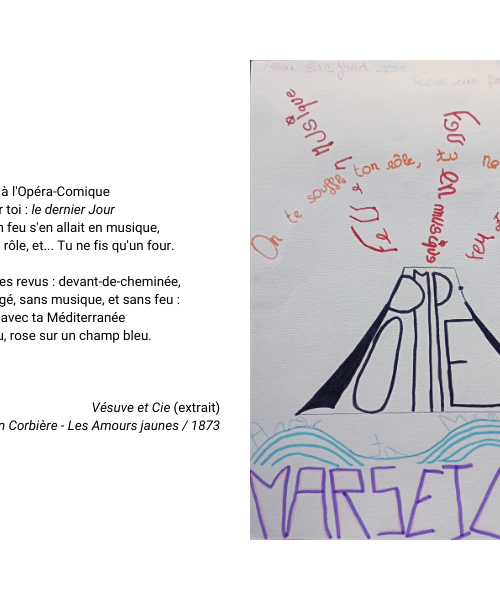 à l'Opéra-Comique
r toi : le dernier Jour
n feu s'en allait en musique,
rôle, et... Tu ne fis qu'un four.
es revus : devant-de-cheminée,
gé, sans musique, et sans feu :
avec ta Méditerranée
u, rose sur un champ bleu.
Vésuve et Cie (extrait)
n Corbière - Les Amours jaunes / 1873
sur fond
Musique
On te souffle ton rôle, et ne
en musique
Feu
POMPE
ta
MARSEIL